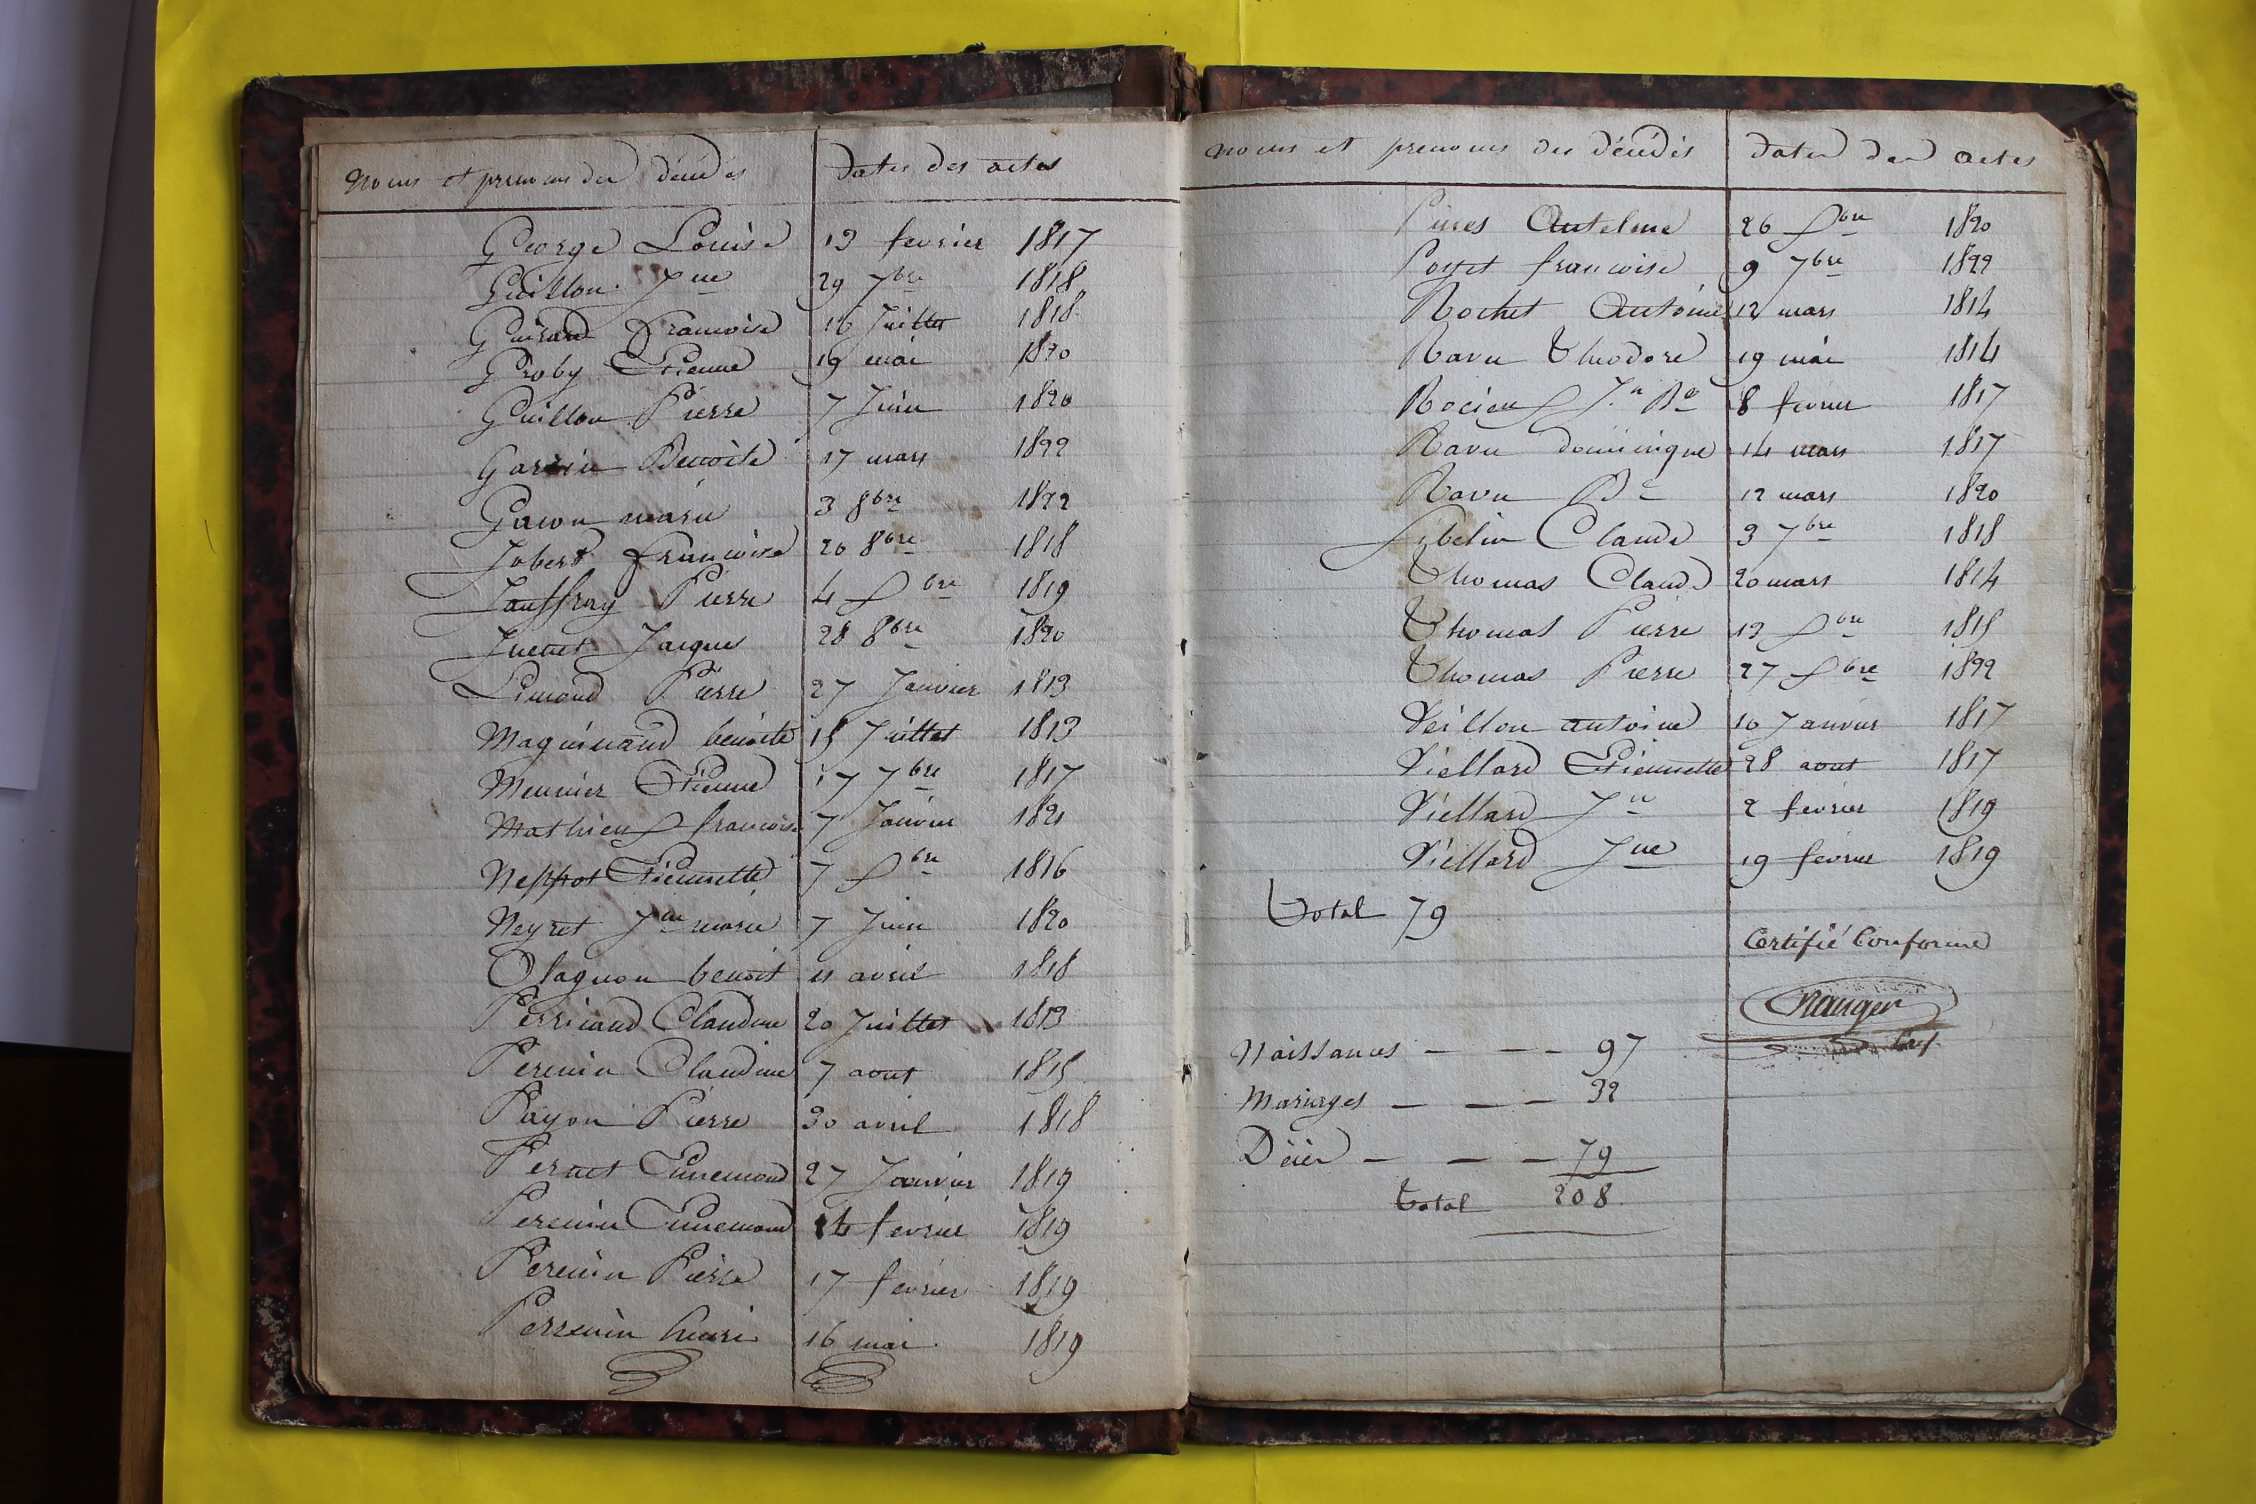 Noms et prenoms des décédés Dates des actes
George Louise 13 fevrier 1817
Guillon Jne 29 7bre 1818
Guirand francoise 16 Juillet 1818
Groby Etienne 19 mai 1820
Guillon Pierre 7 Juin 1820
Garnin Benoite 17 mars 1822
Gacon marie 3 8bre 1822
Jobert francoise 26 8bre 1818
Jauffray Pierre 4 Xbre 1819
Juenet Jacques 28 8bre 1820
Limond Pierre 27 Janvier 1813
Maguinand benoite 15 Juillet 1813
Meunier Etienne 17 7bre 1817
Mathieu francoise 7 Janvier 1821
Etiennette 7 Xbre 1816
Neyret Jne marie 7 Juin 1820
Olagnon benoit 11 avril 1818
Perricaud Claudine 20 Juillet 1813
Perenin Claudine 7 aout 1815
Payon Pierre 30 avril 1818
Pernet Ennemond 27 Janvier 1819
Perenin Ennemond 14 fevrier 1819
Perenin Pierre 17 fevrier 1819
Perrenin henri 16 mai 1819
Noms et prenoms des décédés Dates des actes
Antelme 26 Xbre 1820
francoise 9 7bre 1822
Rochet Antoine 12 mars 1814
Ravu Theodore 19 mai 1814
Jn Bte 8 fevrier 1817
Ravu dominique 14 mars 1817
Ravu Bte 12 mars 1820
Sibelin Claude 3 7bre 1818
Thomas Claude 20 mars 1814
Thomas Pierre 13 Xbre 1815
Thomas Pierre 27 Xbre 1822
Veillon antoine 10 Janvier 1817
Viellard Etiennette 28 aout 1817
Viellard Jn 2 fevrier 1819
Viellard Jne 19 fevrier 1819
Total 79
Certifié Conforme
Naissances - - - 97
Mariages - - - 32
Décès - - - 79
Total 208